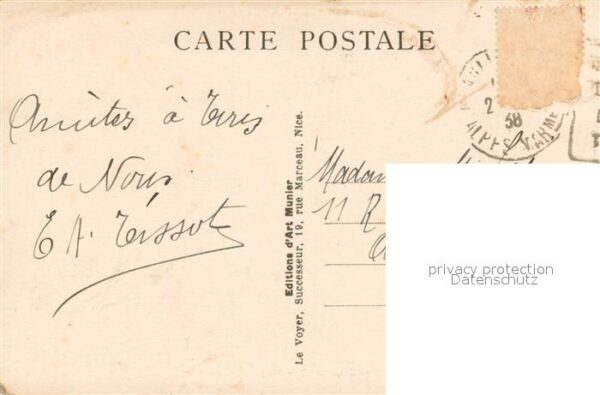 CARTE POSTALE
38
Amitiés à Tous
de Nous
E A. Tissot
Editions d'Art Munier
Le Voyer, Successeur, 19, rue Marceau, Nice.
Madam
11 R
privacy protection
Datenschutz